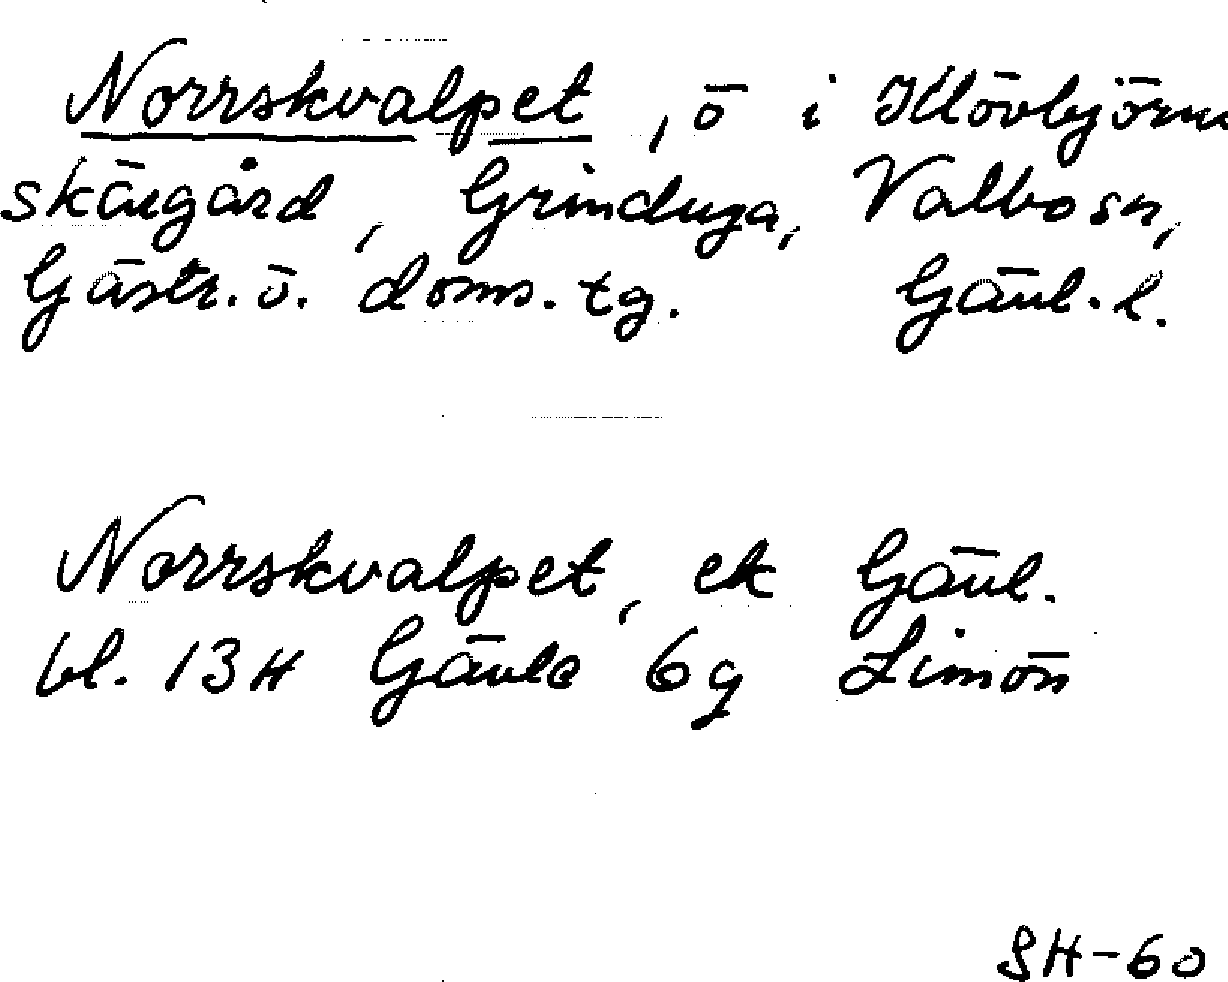 Norrskvalpet, ö i Klövbjörns
skärgård, Grinduga, Valbo sn,
Gästr. ö. doms. tg. Gävl. l.
Norrskvalpet, ek Gävl.
bl. 13H Gävle 6g Limön
SH-60